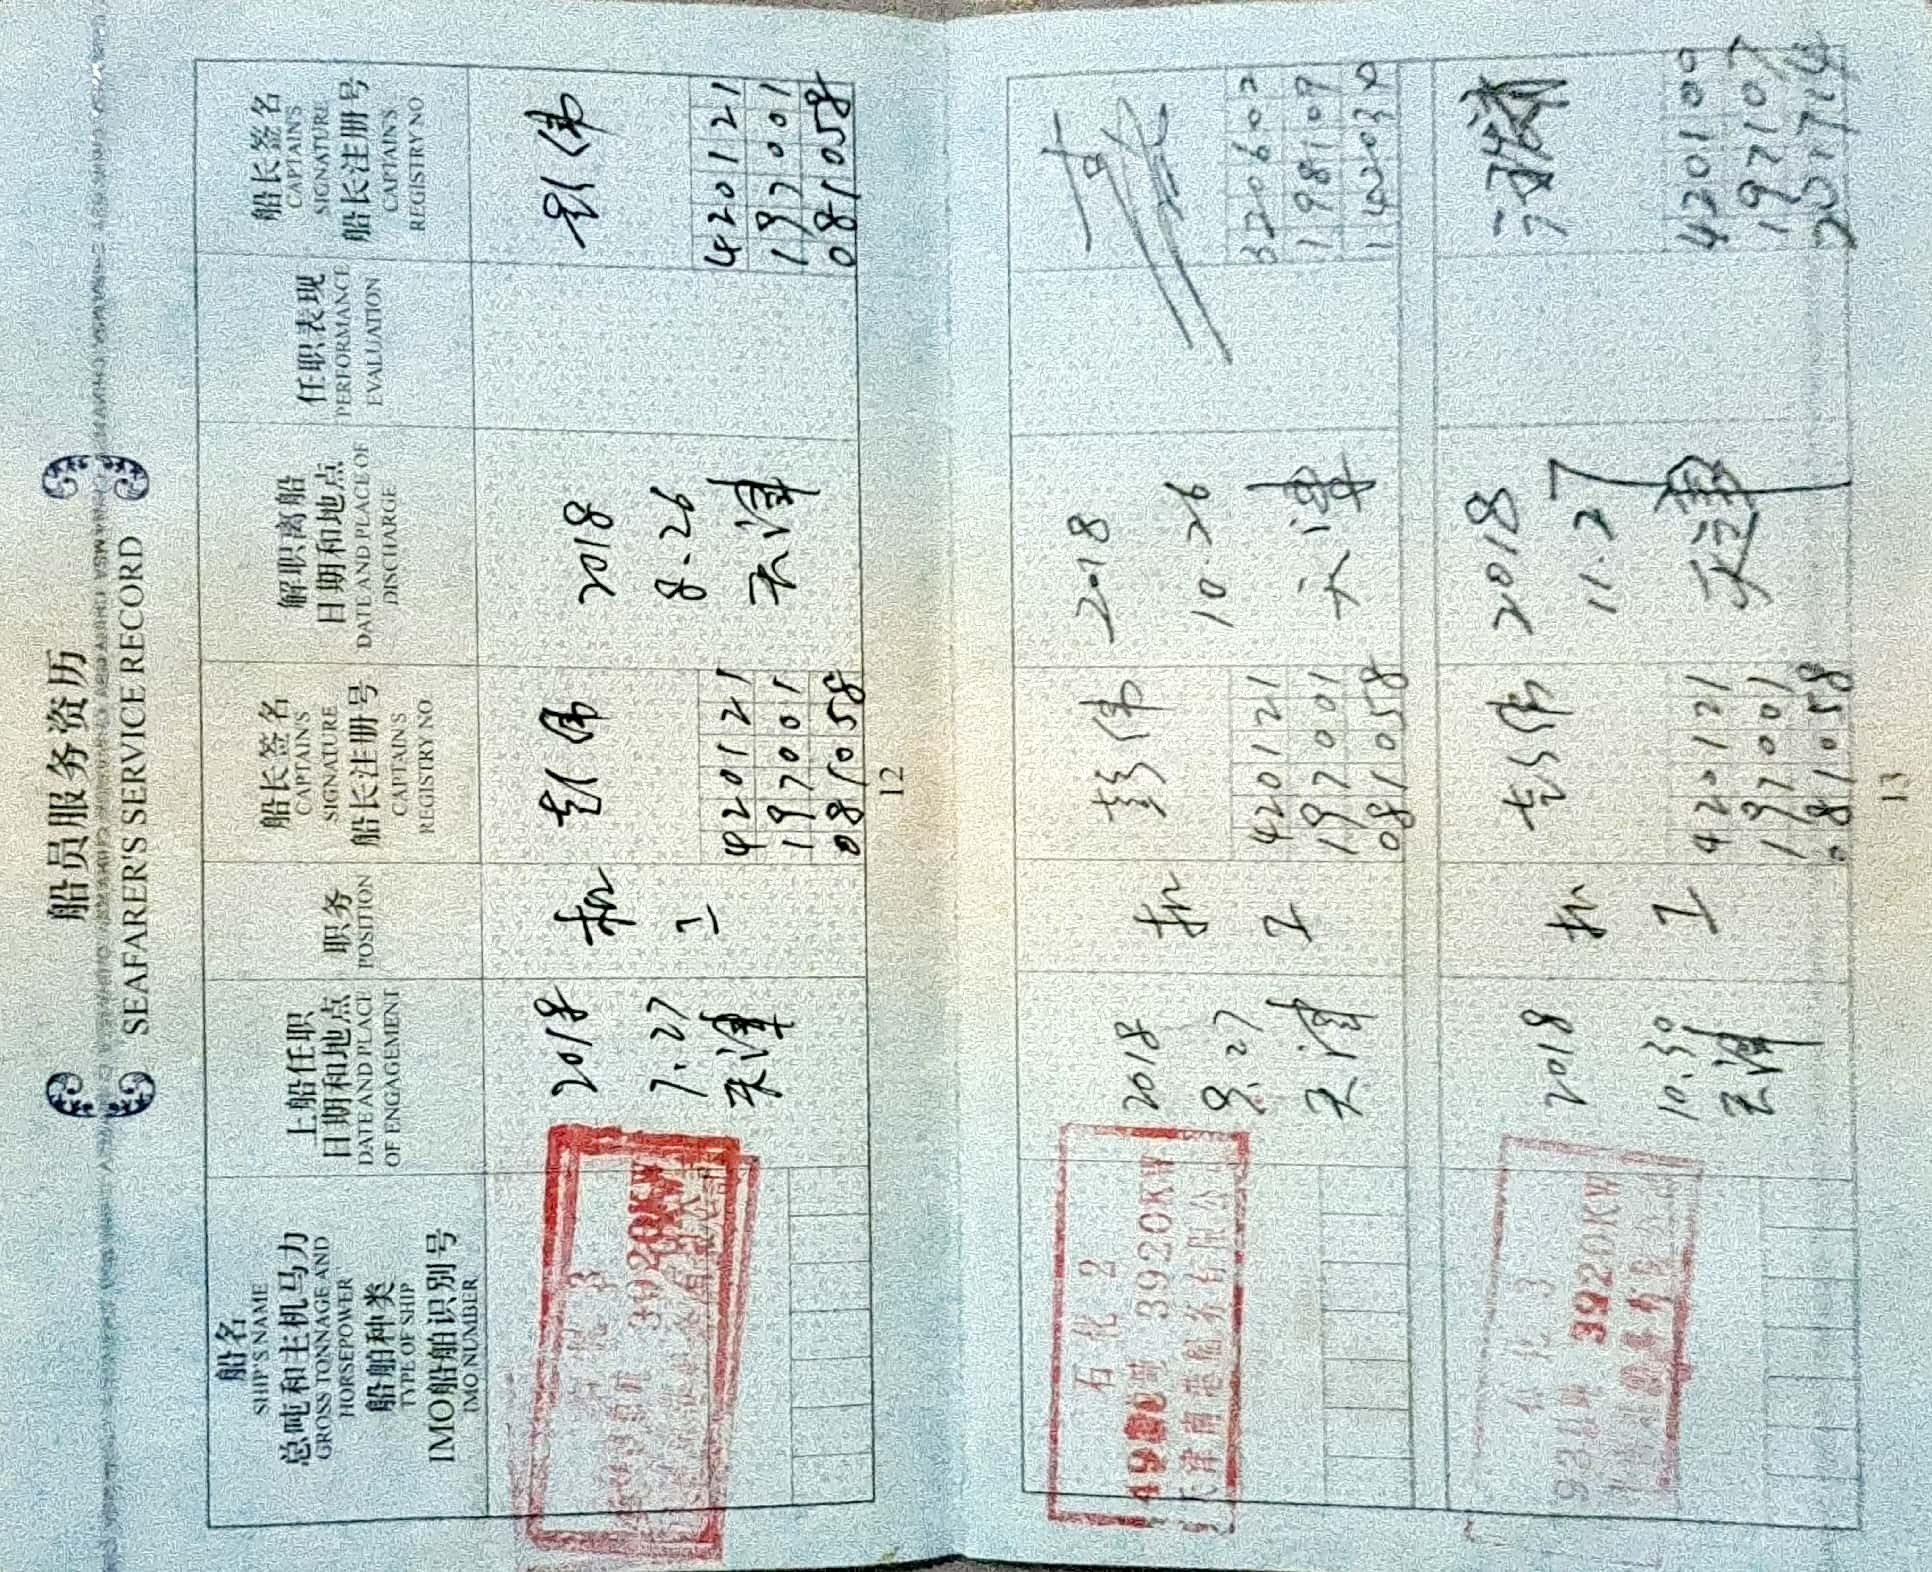 船员服务资历
SEAFARER'S SERVICE RECORD
船名
SHIP'S NAME
总吨和主机马力
GROSS TONNAGE AND
HORSEPOWER
船舶种类
TYPE OF SHIP
IMO船舶识别号
IMO NUMBER
上船任职
日期和地点
DATE AND PLACE
OF ENGAGEMENT
职务
POSITION
船长签名
CAPTAIN'S
SIGNATURE
船长注册号
CAPTAIN'S
REGISTRY NO
解职离船
日期和地点
DATE AND PLACE OF
DISCHARGE
任职表现
PERFORMANCE
EVALUATION
船长签名
CAPTAIN'S
SIGNATURE
船长注册号
CAPTAIN'S
REGISTRY NO
3
3920KW
2018
7.27
天津
机
工
彭伟
420121
197001
081058
2018
8.26
天津
彭伟
420121
197001
081058
12
石化2
3920KW
天津南港船务有限公
2018
9.27
天津
机
工
彭伟
420121
197001
081058
2018
10.26
天津
320602
198109
3
3920KW
2018
10.30
天津
机
工
彭伟
420121
197001
081058
2018
11.27
天津
420100
197107
13